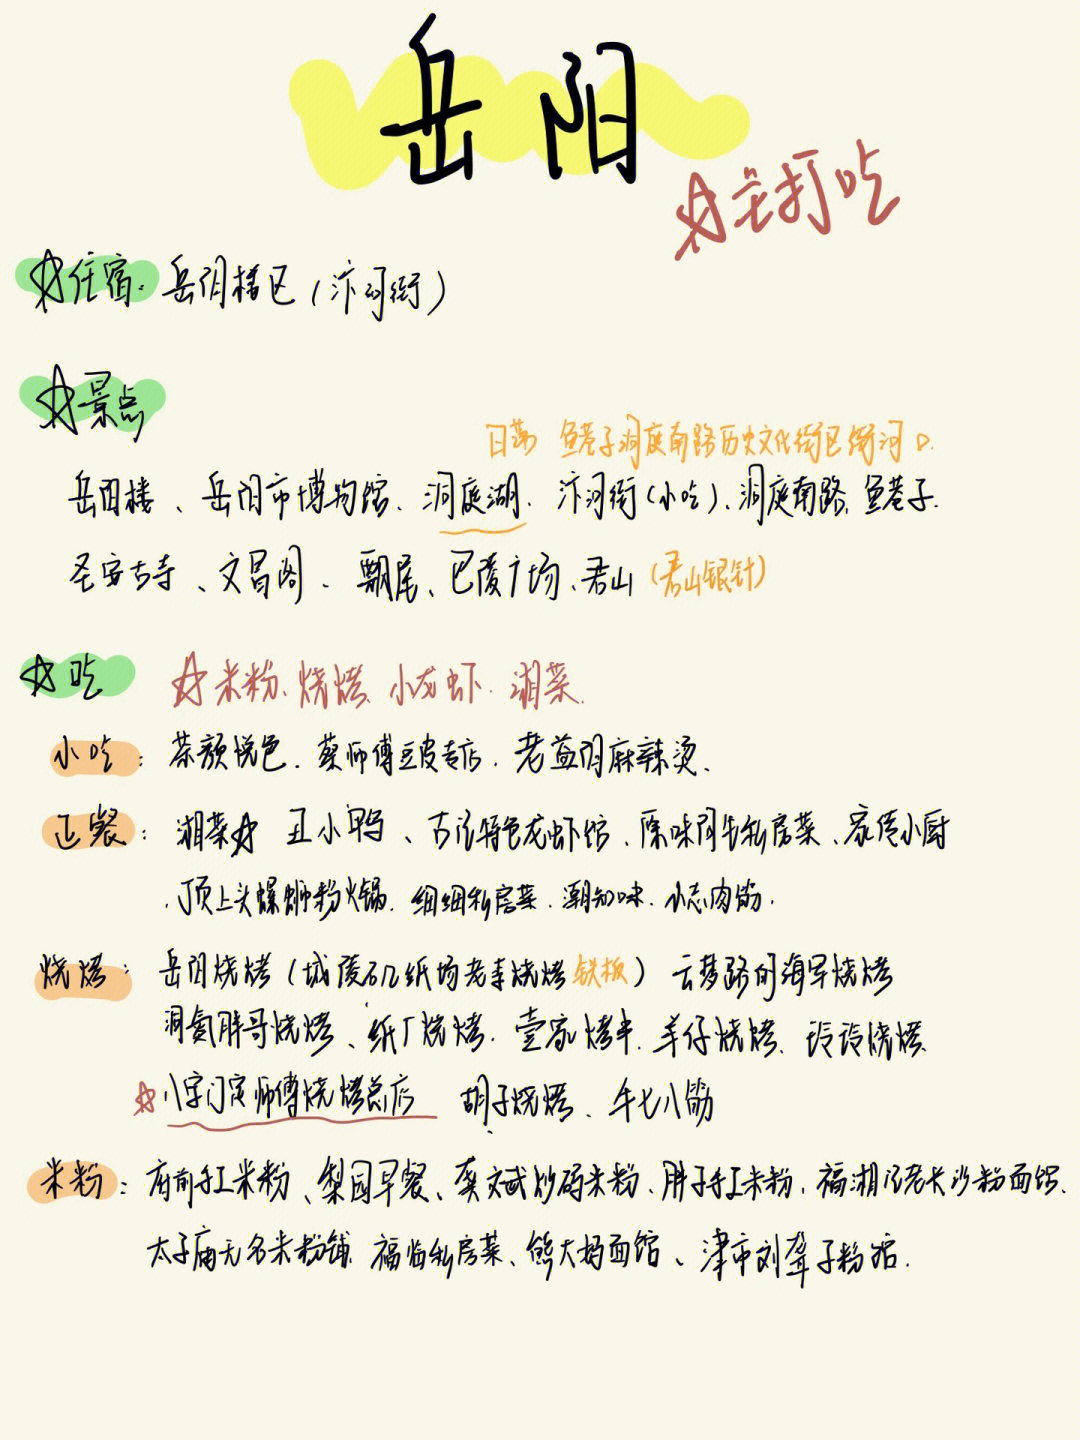 岳阳
☆主打吃
☆住宿：岳阳楼区（汴河街）
☆景点
日落 鱼巷子洞庭南路历史文化街区街河口
岳阳楼、岳阳市博物馆、洞庭湖、汴河街（小吃）、洞庭南路、鱼巷子.
圣安古寺、文昌阁、瓢尾、巴陵广场、君山（君山银针）
☆吃 ☆米粉、烧烤、小龙虾、湘菜.
小吃：茶颜悦色、蔡师傅豆皮专店、老益阳麻辣烫、
正餐：湘菜☆ 丑小鸭、古法特色龙虾馆、原味阁牛私房菜、家传小厨
、顶上头螺蛳粉火锅、细细私房菜、潮知味、小志肉筋.
烧烤：岳阳烧烤（城陵矶纸场老李烧烤铁板）云梦路的海军烧烤
洞氮胖哥烧烤、纸厂烧烤、壹家烤羊、羊仔烧烤、玲玲烧烤
☆八字门定师傅烧烤总店 胡子烧烤、牛七八筋
米粉：府前手工米粉、梨园早餐、龚文斌炒码米粉、胖子手工米粉、福湘汇老长沙粉面馆、
太子庙无名米粉铺、福临私房菜、熊大妈面馆、津市刘聋子粉馆.